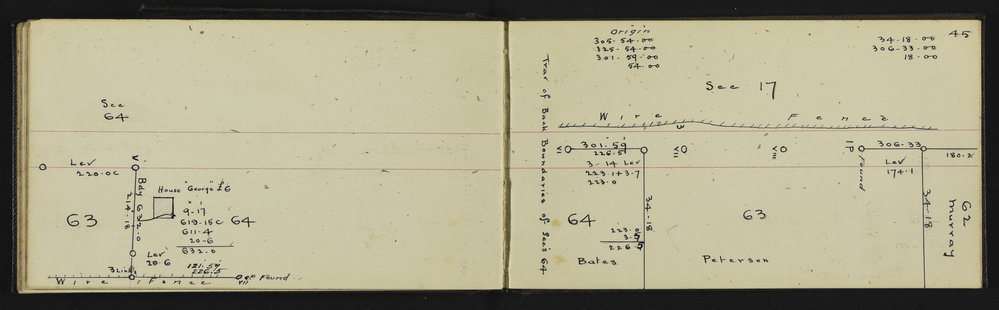 See
64
Lev
220.0c
V
Bdy 632.0
214-18
House "George" £6
9-17
619-15c
611-4
20-6
632.0
63
64
Lev
20-6
3 Links
121-59
226.5
Wire Fence
OP Found
VII
45
Origin
305-54-00
325-54-00
301-59-00
54-00
34-18-00
306-33-00
18-00
Sec 17
Trav of Back Boundaries of Sec's 64
Wire Fence
3
VI
301-59
226.5
3-14 Lev
223-1+3-7
223.0
VII
VIII
IP
found
306-33
Lev
174-1
180.2
34-18
34-18
64
223.0
3.5
226.5
Bates
63
Peterson
62
Murray